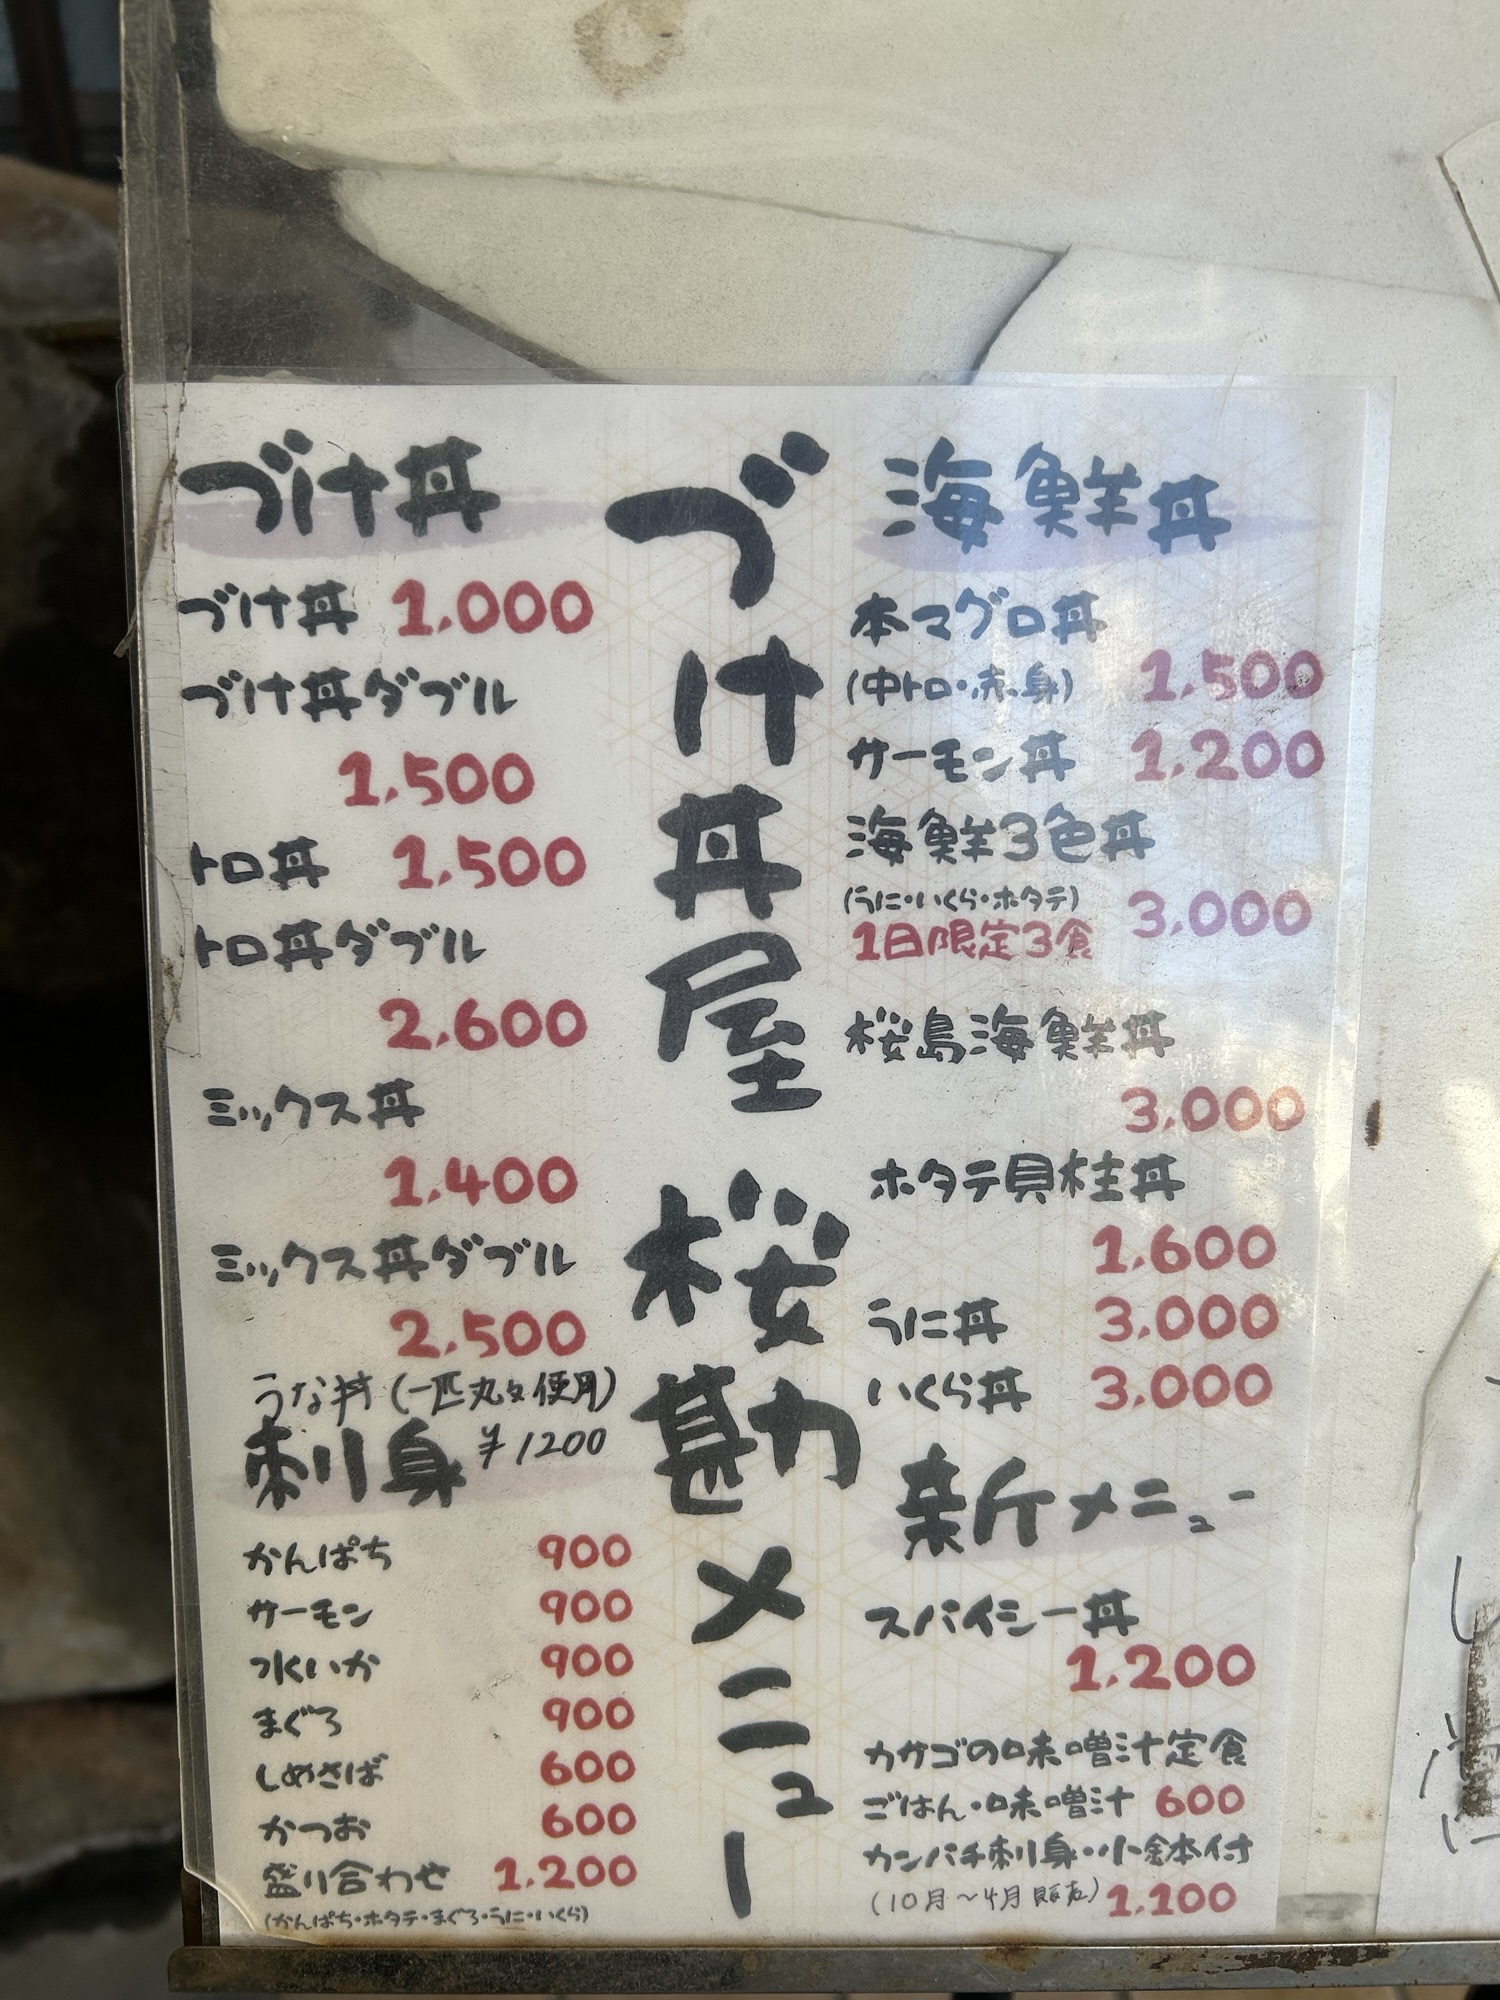 づけ丼屋 桜勘メニュー
づけ丼
づけ丼 1,000
づけ丼ダブル
1,500
トロ丼 1,500
トロ丼ダブル
2,600
ミックス丼
1,400
ミックス丼ダブル
2,500
うな丼(一匹丸々使用)
¥1200
刺り身
かんぱち 900
サーモン 900
水いか 900
まぐろ 900
しめさば 600
かつお 600
盛り合わせ 1,200
(かんぱち・ホタテ・まぐろ・うに・いくら)
海鮮丼
本マグロ丼
(中トロ・赤身) 1,500
サーモン丼 1,200
海鮮3色丼
(うに・いくら・ホタテ) 3,000
1日限定3食
桜島海鮮丼
3,000
ホタテ貝柱丼
1,600
うに丼 3,000
いくら丼 3,000
新メニュー
スパイシー丼
1,200
カサゴの味噌汁定食
ごはん・味噌汁 600
カンパチ刺り身・小鉢付
(10月~4月販売) 1,100